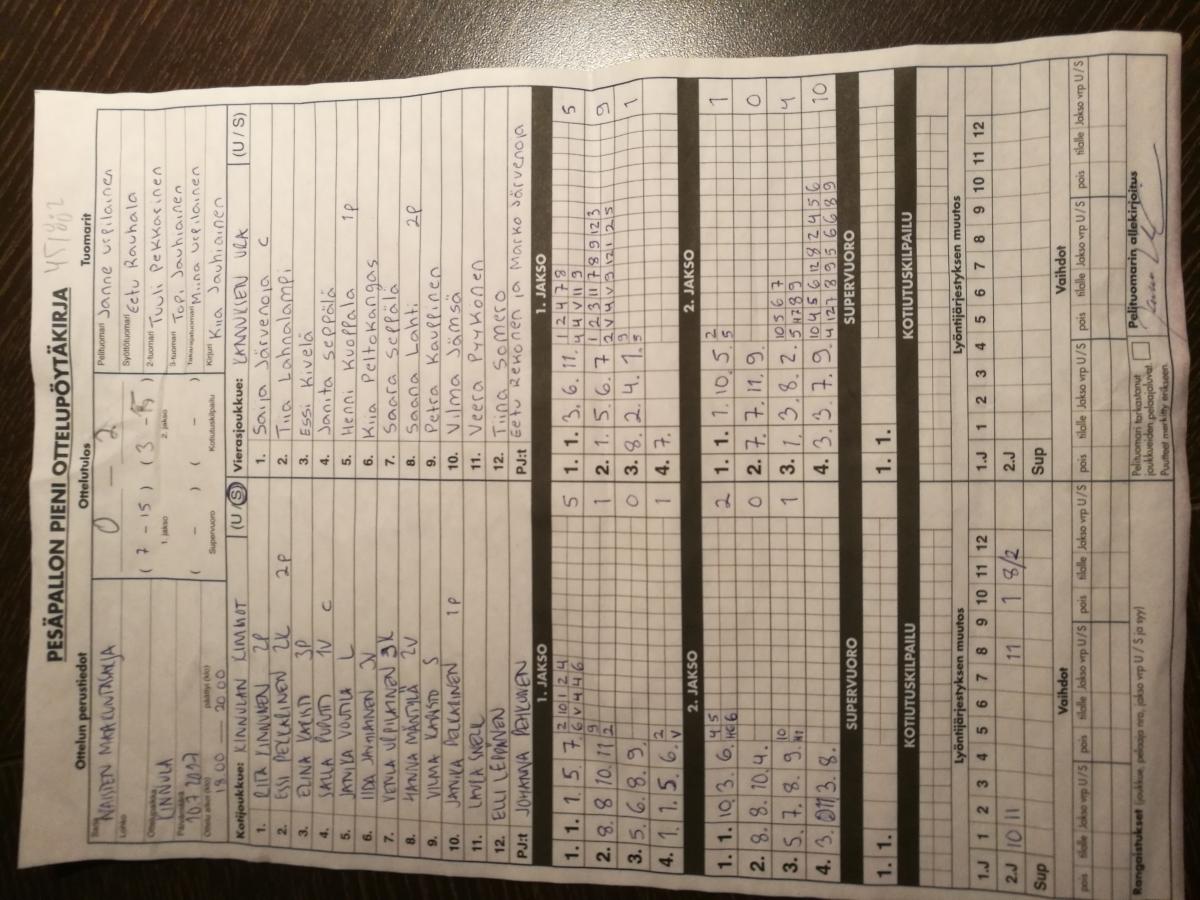 PESÄPALLON PIENI OTTELUPÖYTÄKIRJA 451802
Ottelun perustiedot
Sarja NAISTEN MAAKUNTASARJA
Lohko
Ottelupaikka KINNULA
Päivämäärä 10.7.2017
Ottelu alkoi (klo) 18.00 — päättyi (klo) 20.00
Ottelutulos
0 – 2
( 7 - 15 ) ( 3 - 15 )
1. jakso 2. jakso
( - ) ( - )
Supervuoro Kotiutuskilpailu
Tuomarit
Pelituomari Janne Urpilainen
Syöttötuomari Eetu Rauhala
2-tuomari Tuuli Pekkarinen
3-tuomari Topi Jauhiainen
Takarajatuomari Miina Urpilainen
Kirjuri Kiia Jauhiainen
Kotijoukkue: KINNULAN KIMMOT (U/S)
1. RIITA KINNUNEN 2P
2. ESSI PEKKARINEN 2K 2P
3. ELINA KARISTO 3P
4. SALLA PUPUTTI 1V C
5. JANNIKA VOUTILA L
6. IIDA JANHIAINEN 3V
7. VENLA URPILAINEN 3K
8. HANNA MÄNTYLÄ 2V
9. VILMA KARISTO S
10. JANIKA PEKKARINEN 1P
11. LAURA SNELL
12. ELLI LEPPÄNEN
PJ:t JOHANNA PEHKONEN
Vierasjoukkue: KANNUKSEN URA (U/S)
1. Saija Järvenoja C
2. Tiia Lahnalampi
3. Essi Kivelä
4. Janita Seppälä
5. Henni Kuoppala 1P
6. Kiia Peltokangas
7. Saara Seppälä
8. Saana Lahti 2P
9. Petra Kauppinen
10. Vilma Jämsä
11. Veera Pyykönen
12. Tiina Somero
PJ:t Eetu Rekonen ja Marko Järvenoja
1. JAKSO
1. 1. 1. 5. 7. 2 10 1 2 4 5
6 V 4 4 6
2. 8. 8 10. 11 9 1
2
3. 5. 6. 8. 9. 0
4. 1. 1. 5. 6. 2 1
V
1. JAKSO
1. 1. 3. 6. 11. 1 2 4 7 8 5
4 4 V 11 9
2. 1. 5. 6. 7 1 2 3 11 7 8 9 12 3 9
2 V 4 V 3 12 1 2 5
3. 8. 2. 4. 1. 3 1
5
4. 7.
2. JAKSO
1. 1. 10. 3. 6. 4 5 2
2. 8. 8. 10. 4. 0
3. 5. 7. 8. 9. 10 1
4. 3. 3. 8.
2. JAKSO
1. 1. 1. 10. 5. 2 1
5
2. 7. 7. 11. 9. 0
3. 1. 3. 8. 2. 10 5 6 7 4
5 4 7 8 9
4. 3. 3. 7. 9. 10 4 5 6 12 8 2 4 5 6 10
4 12 7 8 9 5 6 6 8 9
SUPERVUORO
1. 1.
SUPERVUORO
1. 1.
KOTIUTUSKILPAILU
KOTIUTUSKILPAILU
Lyöntijärjestyksen muutos
1.J 1 2 3 4 5 6 7 8 9 10 11 12
2.J 10 11 11 1 8/2
Sup
Lyöntijärjestyksen muutos
1.J 1 2 3 4 5 6 7 8 9 10 11 12
2.J
Sup
Vaihdot
pois tilalle Jakso vrp U/S pois tilalle Jakso vrp U/S pois tilalle Jakso vrp U/S
Vaihdot
pois tilalle Jakso vrp U/S pois tilalle Jakso vrp U/S pois tilalle Jakso vrp U/S
Rangaistukset (joukkue, pelaaja nro, jakso vrp U / S ja syy)
Pelituomari tarkastanut joukkueiden pelaajaluvat. Puutteet merkitty erikseen.
Pelituomarin allekirjoitus